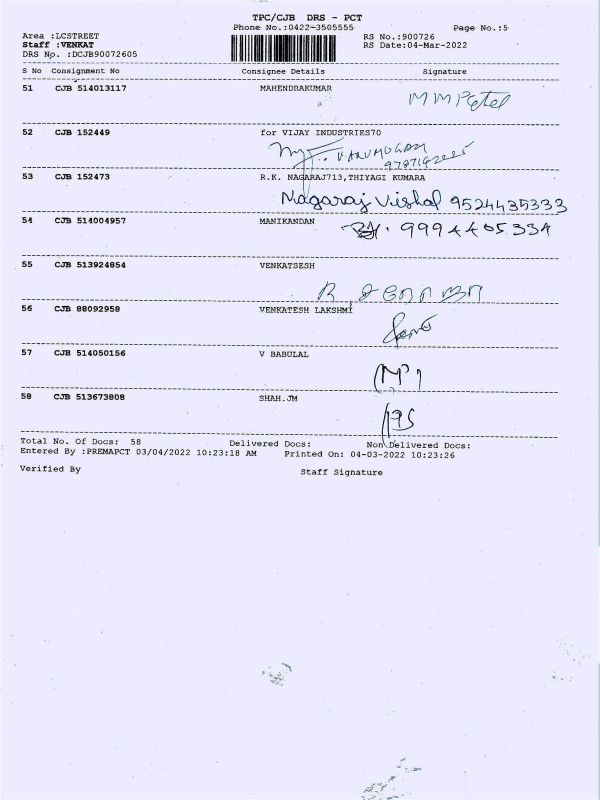 TPC/CJB DRS - PCT
Phone No.:0422-3505555
Page No.:5
Area :LCSTREET
RS No.:900726
Staff :VENKAT
RS Date:04-Mar-2022
DRS No. :DCJB90072605
S No Consignment No Consignee Details Signature
51 CJB 514013117 MAHENDRAKUMAR
MMPatel
52 CJB 152449 for VIJAY INDUSTRIES70
53 CJB 152473 R.K. NAGARAJ713,THIYAGI KUMARA
Nagaraj Vishal 9524435333
54 CJB 514004957 MANIKANDAN
9994405334
55 CJB 513924854 VENKATSESH
56 CJB 88092958 VENKATESH LAKSHMI
57 CJB 514050156 V BABULAL
58 CJB 513673808 SHAH.JM
Total No. Of Docs: 58 Delivered Docs: Non Delivered Docs:
Entered By :PREMAPCT 03/04/2022 10:23:18 AM Printed On: 04-03-2022 10:23:26
Verified By Staff Signature